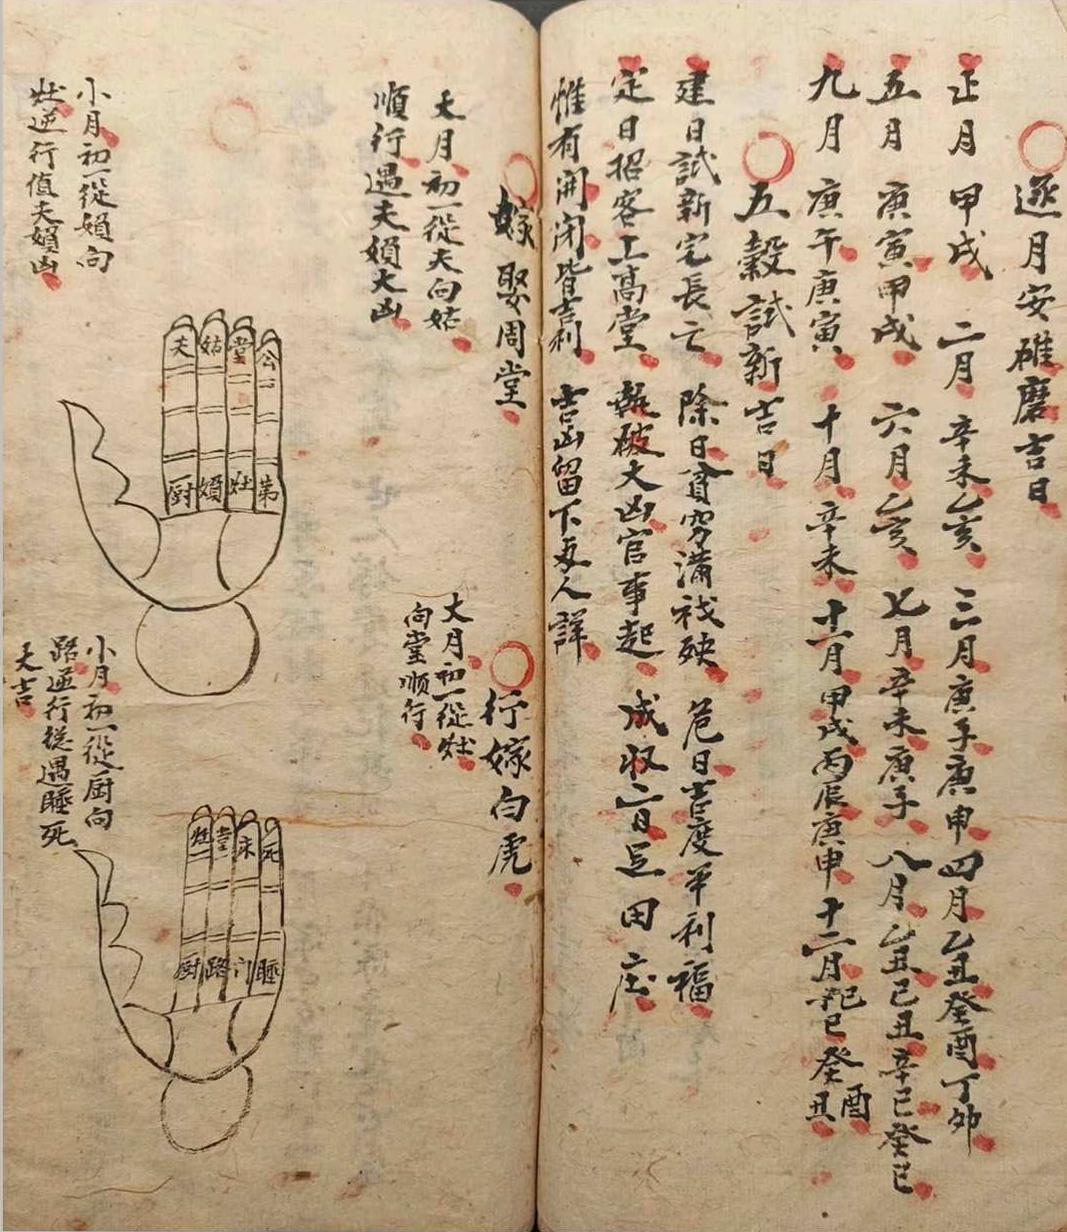 逐月安碓磨吉日
正月 甲戌 二月 辛未乙亥 三月庚子庚申 四月乙丑癸酉丁卯
五月 庚寅甲戌 六月乙亥 七月辛未庚子 八月乙丑己丑辛巳癸巳
九月 庚午庚寅 十月 辛未 十一月甲戌丙辰庚申 十二月 己巳 癸丑酉
五穀試新吉日
建日試新宅長亡 除日貧窮滿殃 危日吉度平利福
定日招客上高堂 執破大凶官事起 成收二日足田庄
惟有開閉皆吉利 吉凶留下后人詳
嫁娶周堂
大月初一從夫向姑
順行遇夫婦大凶
小月初一從婦向
灶逆行值夫婦凶
夫姑堂公
厨婦灶第
行嫁白虎
大月初一從灶
向堂順行
小月初一從厨向
路逆行從遇睡死
大吉
灶堂床死
厨路门睡